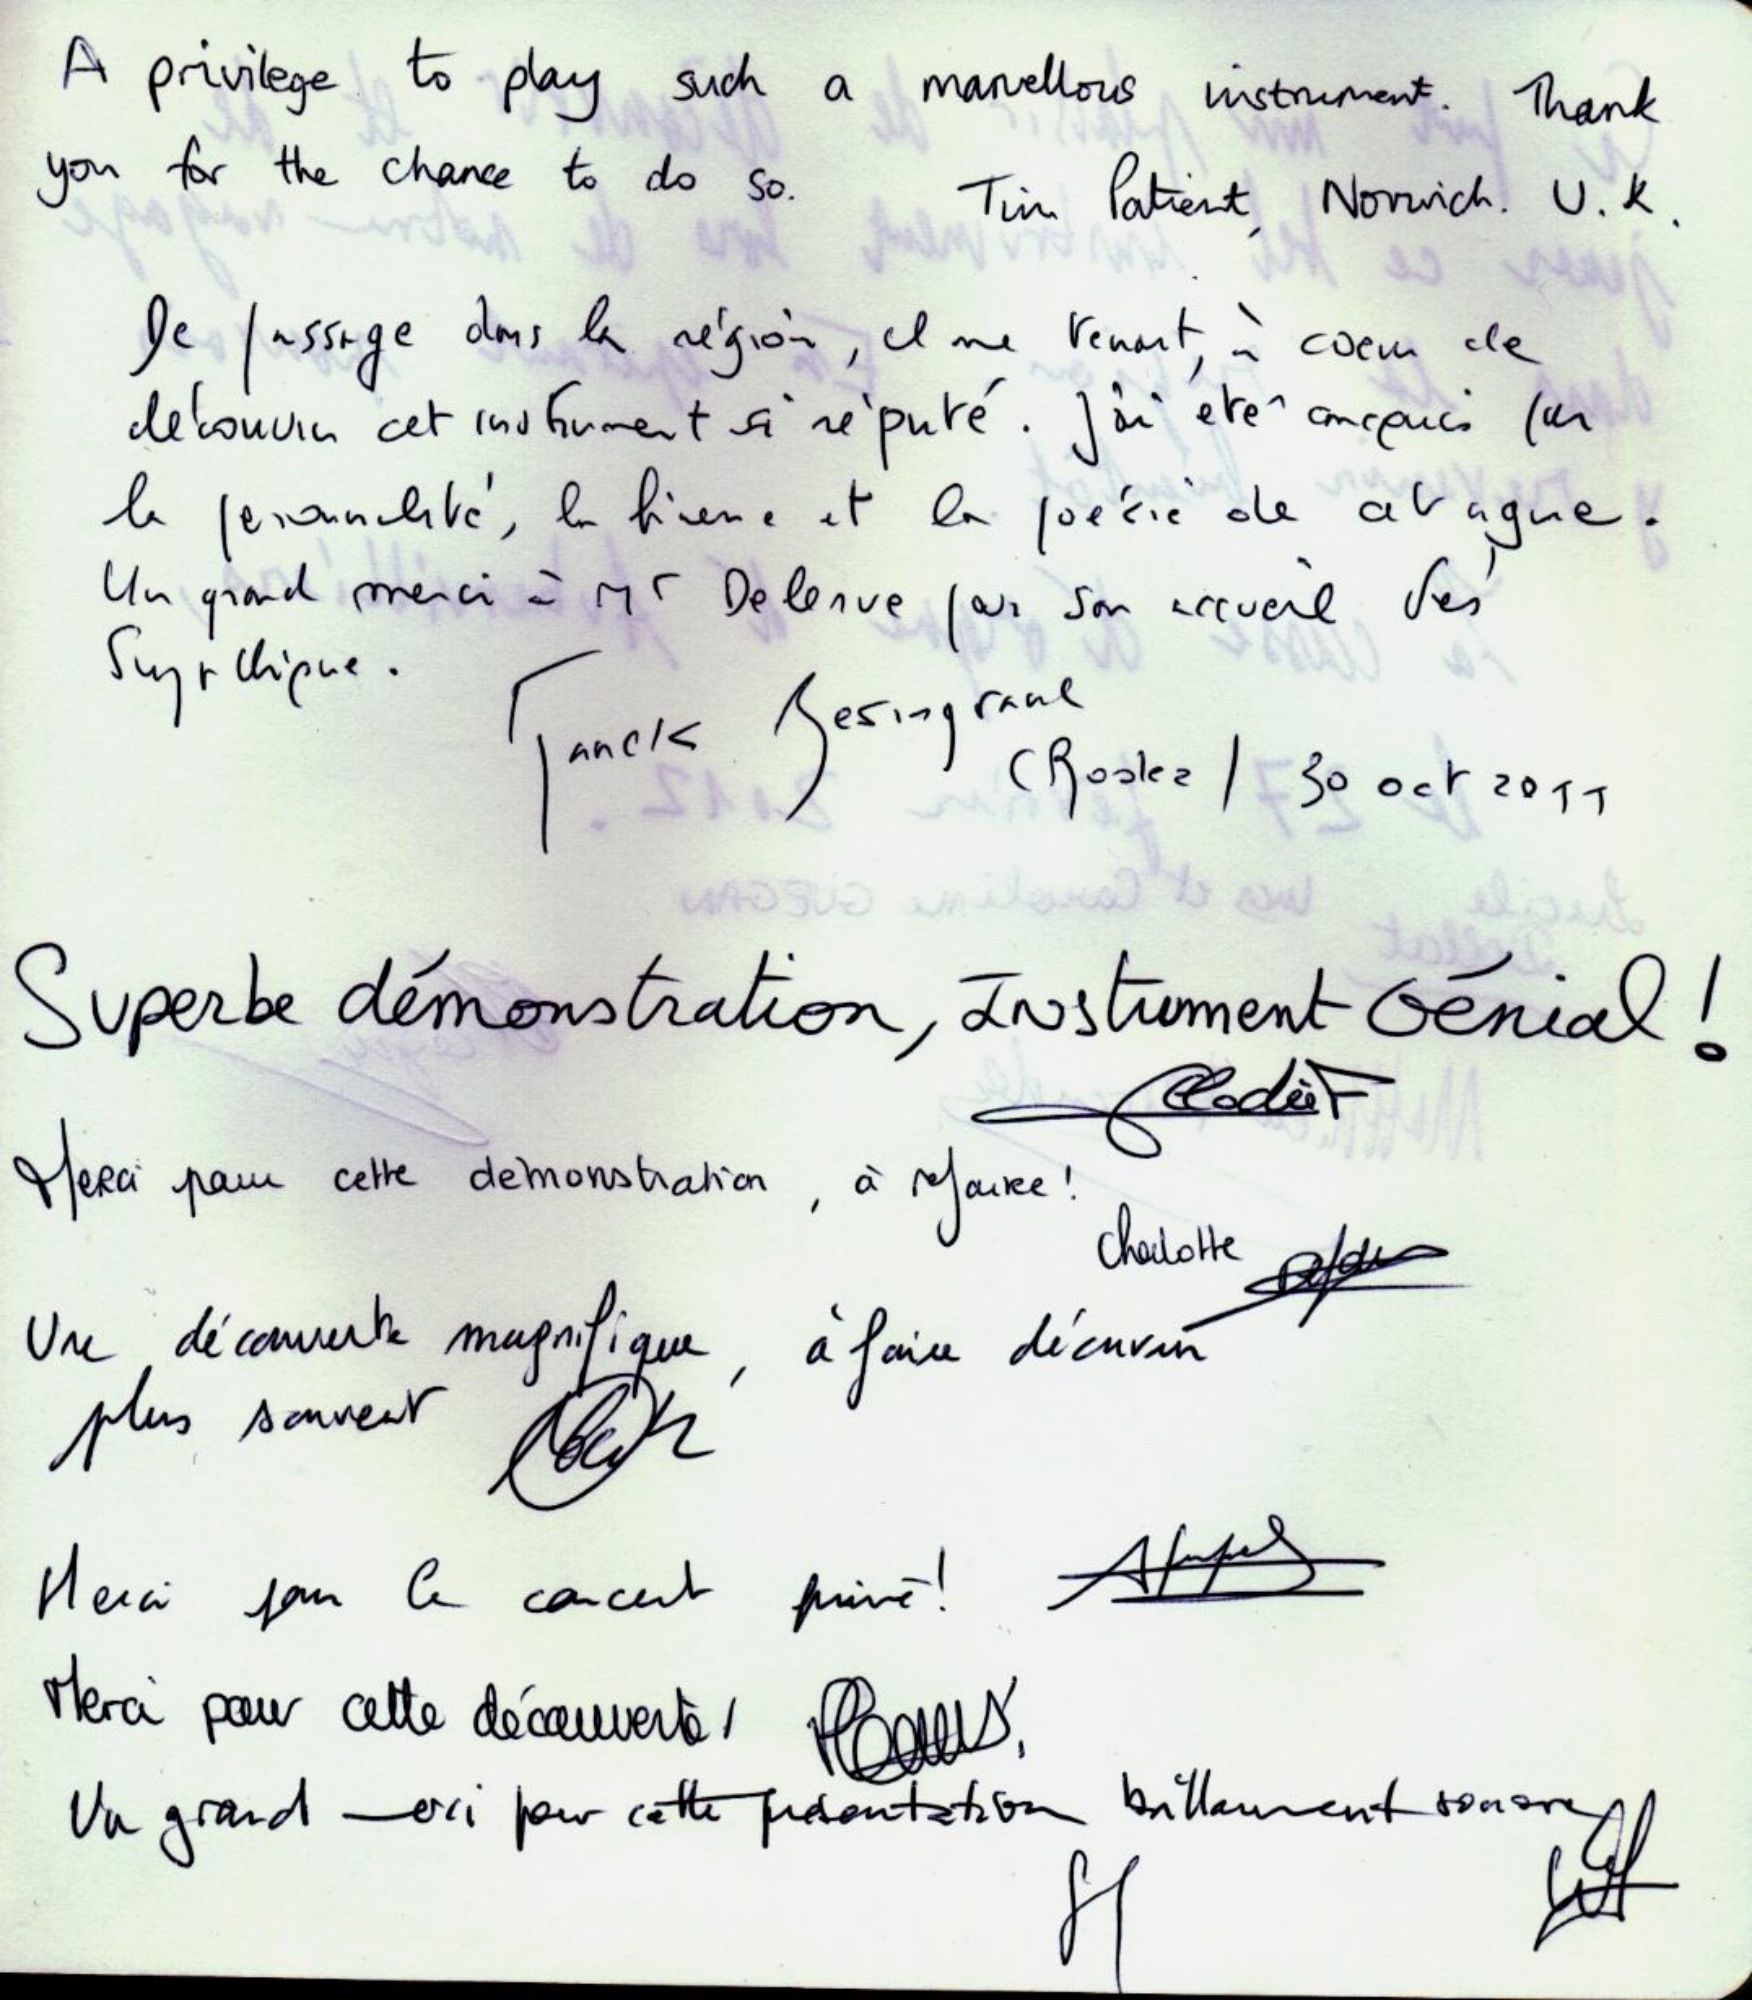 A privilege to play such a marvellous instrument. Thank
you for the chance to do so. Tim Patient, Norwich. U.K.
De passage dans la région, il me tenait à coeur de
découvrir cet instrument si réputé. J'ai été conquis par
la personnalité, la finesse et la poésie de cet orgue.
Un grand merci à Mr Delerue pour son accueil très
sympathique.
(Rodez / 30 oct 2011
Superbe démonstration, Instrument Génial !
Merci pour cette démonstration, à refaire !
Charlotte
Une découverte magnifique, à faire découvrir
plus souvent
Merci pour le concert privé !
Merci pour cette découverte !
Un grand merci pour cette présentation brillamment sonore